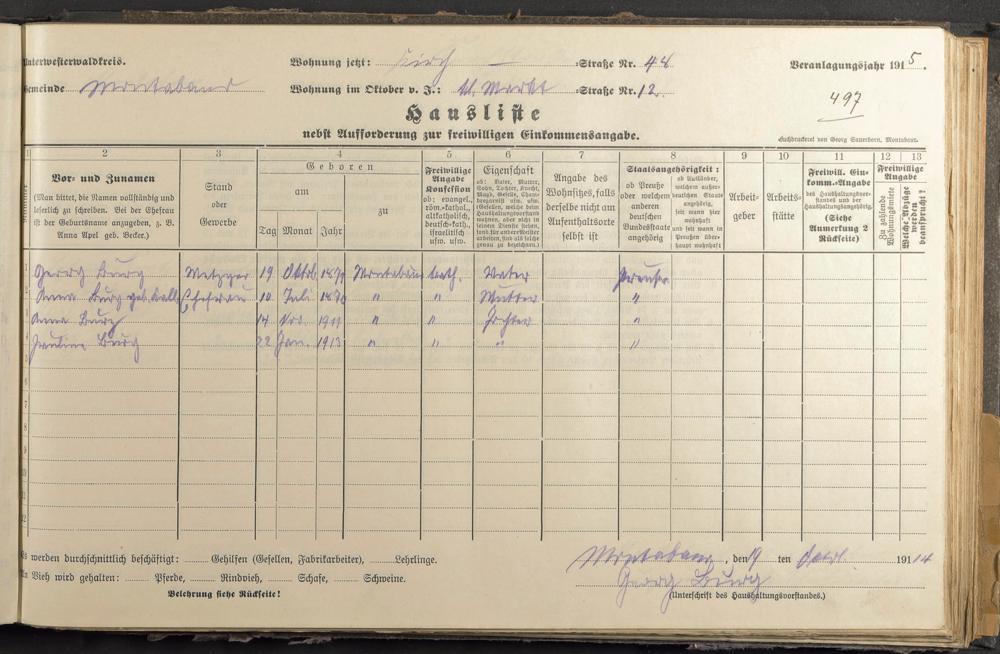 Unterwesterwaldkreis.
Wohnung jetzt: Kirch — =Straße Nr. 48
Veranlagungsjahr 1915.
Gemeinde Montabaur
Wohnung im Oktober v. J.: Kl. Markt =Straße Nr. 12.
497
Hausliste
nebst Aufforderung zur freiwilligen Einkommensangabe.
Buchdruckerei von Georg Sauerborn, Montabaur.
1 2 3 4 5 6 7 8 9 10 11 12 13
Vor= und Zunamen
(Man bittet, die Namen vollständig und leserlich zu schreiben. Bei der Ehefrau ist der Geburtsname anzugeben, z. B. Anna Apel geb. Becker.)
Stand oder Gewerbe
Geboren
am
Tag Monat Jahr
zu
Freiwillige Angabe Konfession
ob: evangel., röm.=kathol., altkatholisch, deutsch=kath., israelitisch, usw. usw.
Eigenschaft
ob: Vater, Mutter, Sohn, Tochter, Knecht, Magd, Geselle,
Angabe des Wohnsitzes, falls derselbe nicht am Aufenthaltsorte selbst ist
Staatsangehörigkeit:
ob Preuße oder welchem anderen deutschen Bundesstaate angehörig
ob Ausländer, welchem außerdeutschen Staate angehörig, seit wann hier wohnhaft und seit wann in Preußen überhaupt wohnhaft
Arbeitgeber
Arbeitsstätte
Freiwill. Einkomm.=Angabe
des Haushaltungsvorstandes und der Haushaltungsangehörig.
(Siehe Anmerkung 2 Rückseite)
Freiwillige Angabe
Zu zahlende Wohnungsmiete
Welche Abzüge werden beansprucht?
Georg Burg Metzger 19 Oktb. Montabaur kath. Vater Preuße
Anna Burg geb. Ehefrau 10 Juli " " Mutter "
Anna Burg 14 Nov. 1911 " " Tochter "
Pauline Burg 22 Jan. 1913 " " " "
Es werden durchschnittlich beschäftigt: Gehilfen (Gesellen, Fabrikarbeiter), Lehrlinge.
An Vieh wird gehalten: Pferde, Rindvieh, Schafe, Schweine.
Belehrung siehe Rückseite!
Montabaur, den 19 ten 1914
Georg Burg
(Unterschrift des Haushaltungsvorstandes.)